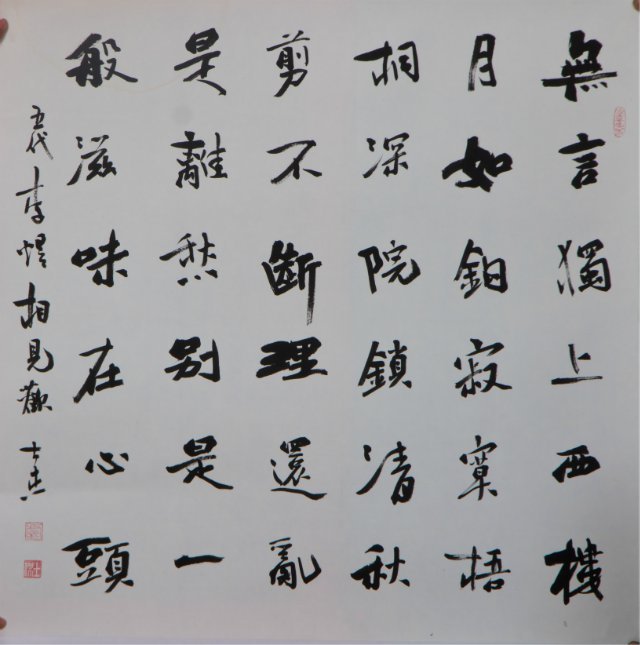 無言獨上西樓
月如鈎寂寞梧
桐深院鎖清秋
剪不斷理還亂
是離愁别是一
般滋味在心頭
五代李煜相見歡